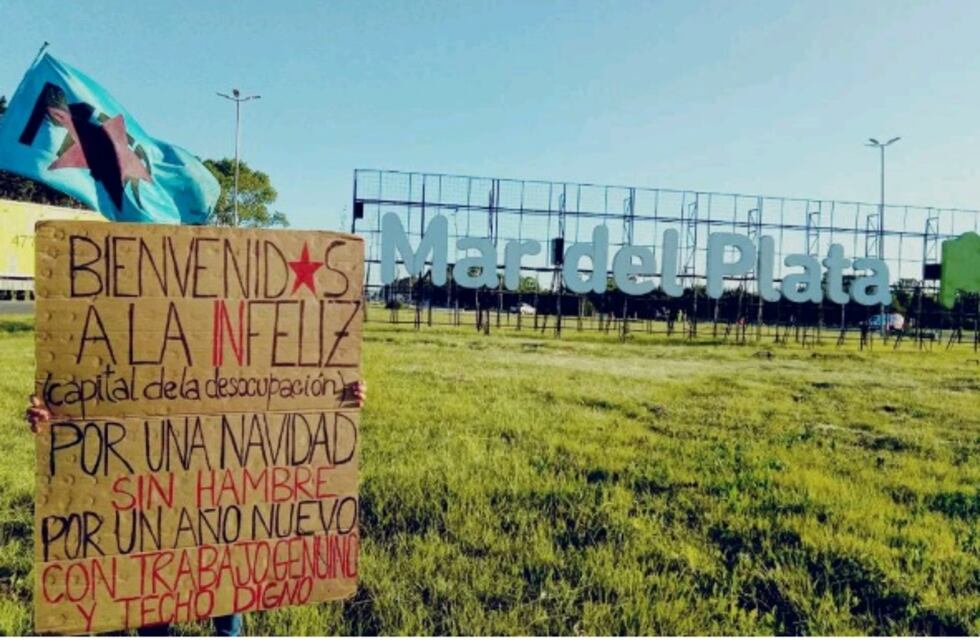 BIENVENID★S
A LA INFELIZ
(capital de la desocupación)
POR UNA NAVIDAD
SIN HAMBRE
POR UN AÑO NUEVO
CON TRABAJO GENUINO
Y TECHO DIGNO
Mar del Plata